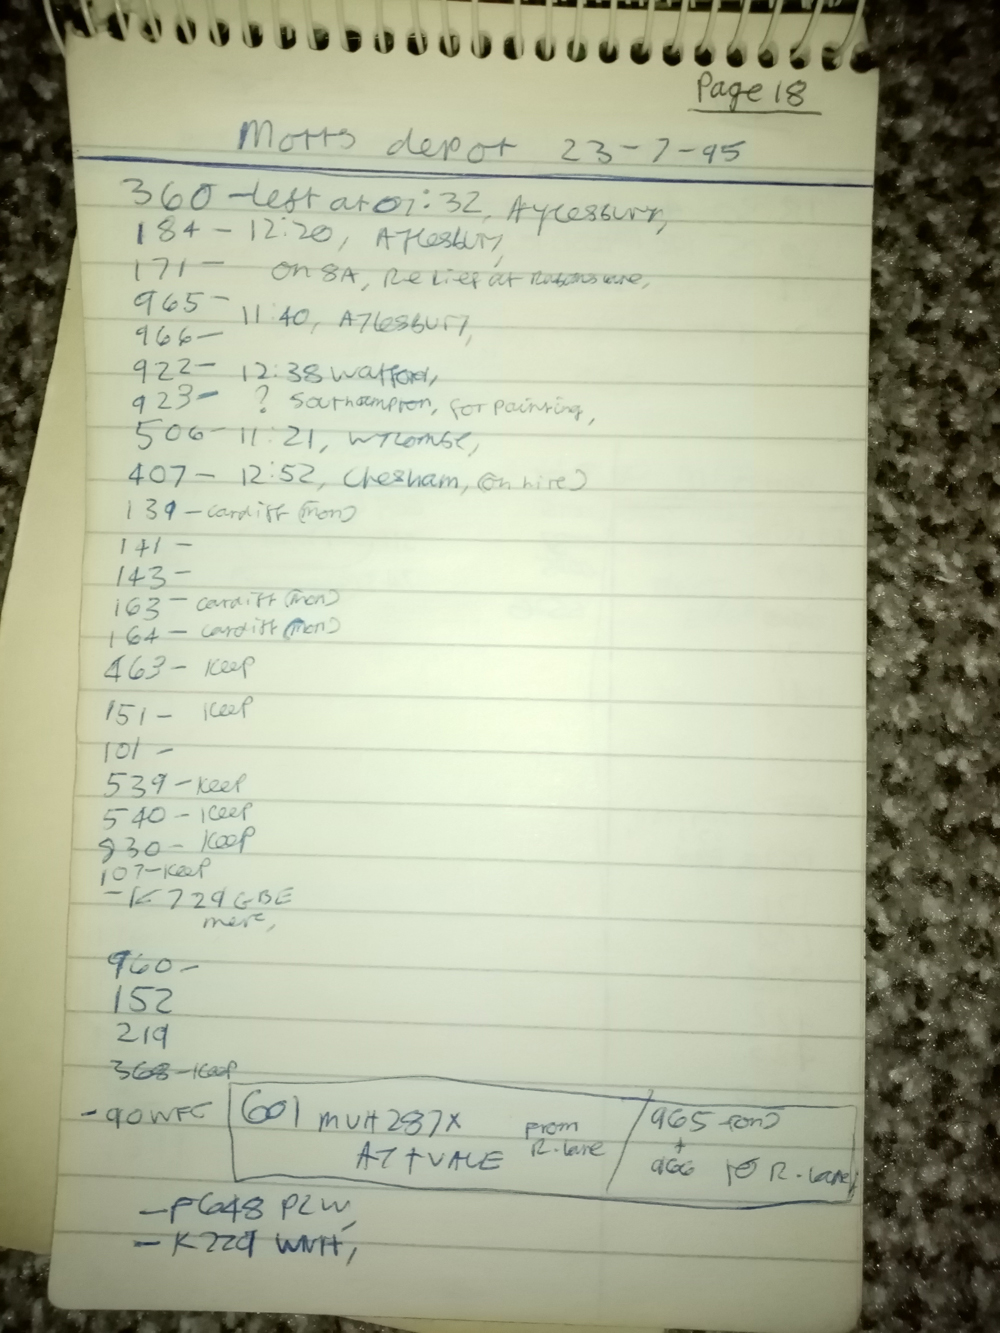 Page 18
Motts depot 23-7-95
360 - left at 07:32, Aylesbury,
184 - 12:20, Aylesbury,
171 - on 8A, Relief at
965 -
11:40, Aylesbury,
966 -
922 - 12:38 Watford,
923 - ? Southampton, for painting,
506 - 11:21, Wycombe,
407 - 12:52, Chesham, (on hire)
139 - cardiff (mon)
141 -
143 -
163 - cardiff (mon)
164 - cardiff (mon)
463 - Keep
151 - Keep
101 -
539 - Keep
540 - Keep
930 - Keep
107 - Keep
- K729 GBE
merc,
960 -
152
219
368 - Keep
- 90WFC
601 MUH 287X from R.lane
AY + VALE
965
+
966 to R.lane
- F648 PLW,
- K229 WNH,